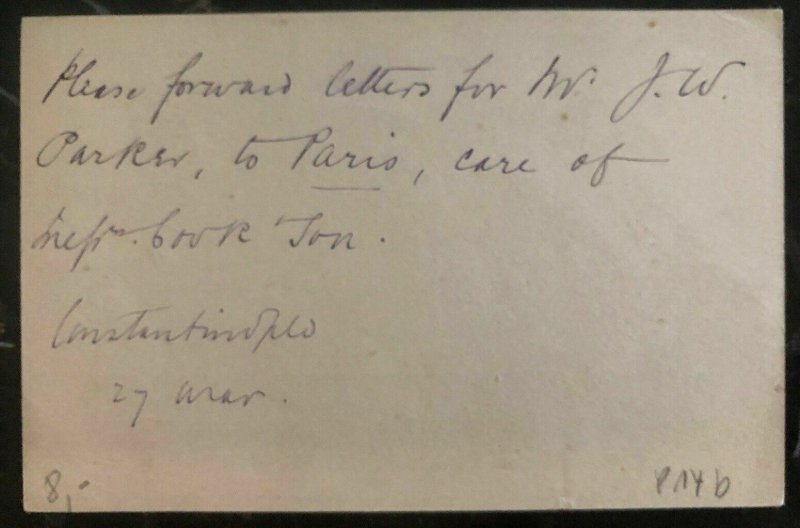 Please forward letters for Mr. J. W.
Parker, to Paris, care of
Messrs. Cook & Son.
Constantinople
27 Mar.
8,-
P 14 b